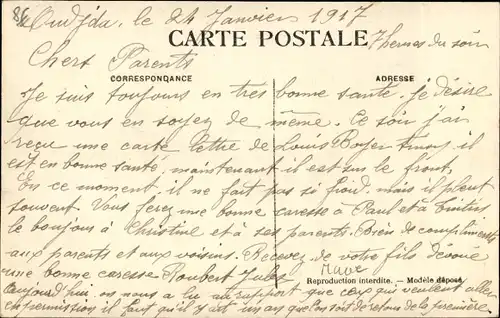 Oudjda, le 24 Janvier 1917
CARTE POSTALE 7 heures du soir
Chers Parents
CORRESPONDANCE ADRESSE
Je suis toujours en tres bonne santé. je désire
que vous en soyez de même. Ce soir j'ai
reçu une carte lettre de Louis Boyer il
est en bonne santé, maintenant il est sur le front.
En ce moment, il ne fait pas si froid, mais il pleut
souvent. Vous ferez une bonne caresse à Paul et à
le bonjour à Christine et à ses parents. Bien de compliments
aux parents et aux voisins. Recevez de votre fils dévoué
une bonne caresse Roubert Jules
Reproduction interdite. — Modèle déposé.
Aujourd'hui on nous a lu au rapport que ceux qui veulent aller
en permission il faut qu'il y ait un an que l'on soit de retour de la première.